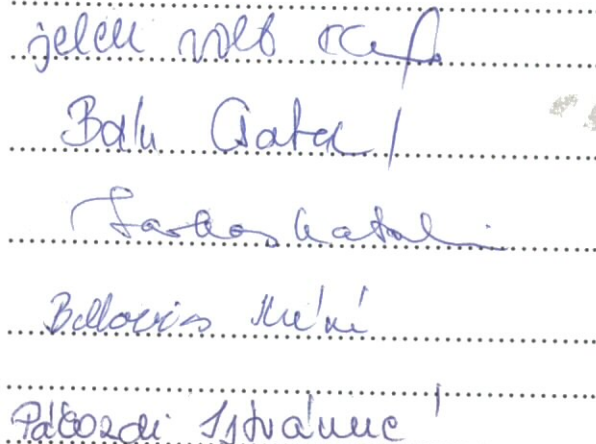 jelen volt
Balu Csaba
Farkas Katalin
Bellovics
Pákozdi Istvánné